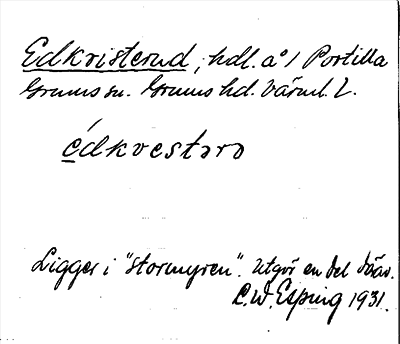 Edkristerud, hdl. a° 1 Portilla
Grums sn. Grums hd. Värml. l.
édkvestərə
Ligger i "Stormyren". Utgör en del därav.
C.W. Esping 1931.